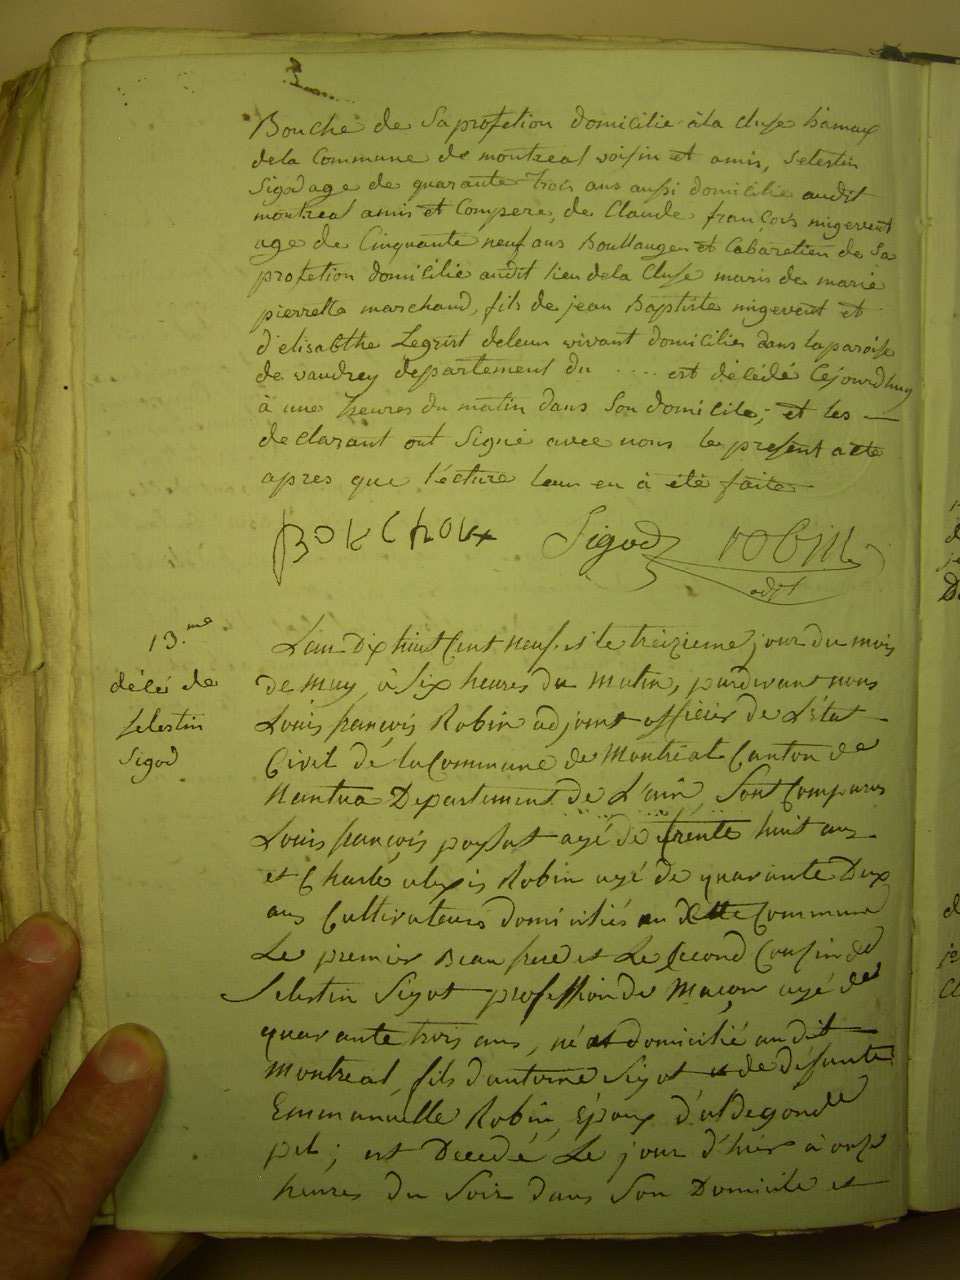 Bouche de Saprofetion domicilié àla Cluse hamaux
dela Commune de montréal voisin et amis, Selestin
Sigod age de quarante trois ans aussi domicilié audit
montréal amis et Compere, de Claude françois migevent
age de Cinquante neuf ans Boullanger et Cabaretier de Sa
profetion domicilié audit lieu dela Cluse maris de marie
pierrette marchand, fils de jean Baptiste migevent et
d'elisabthe Legrist deleur vivant domiciliés dans laparoisse
de vaudrey departement du .... est décédé Cejourdhuy
à une heures du matin dans Son domicile; et les
declarant ont Signé avec nous le present acte
apres que l'écture leur en à été faite
BOUCHOUX Sigod robin
adjt
13.me
décé de
Selestin
Sigod
L'an Dix huit Cent neuf et le treizieme jour du mois
de May, à Six heures du Matin, pardevant nous
Louis françois Robin adjoint officier de L'état
Civil de la Commune de Montréal Canton de
Nantua Département de L'ain, Sont Comparus
Louis françois agé de trente huit ans
et Charle alexis Robin agé de quarante Deux
ans Cultivateurs domiciliés en dette Commune
Le premier Beau frere et Le Second Cousin de
Selestin Sigot profession de Maçon agé de
quarante trois ans, né et domicilié audit
Montréal, fils d'antoine Sigot et de défunte
Emmanuelle Robin, Époux d'aldegonde
; est Decedé Le jour d'hier à onze
heures du Soir dans Son Domicile et